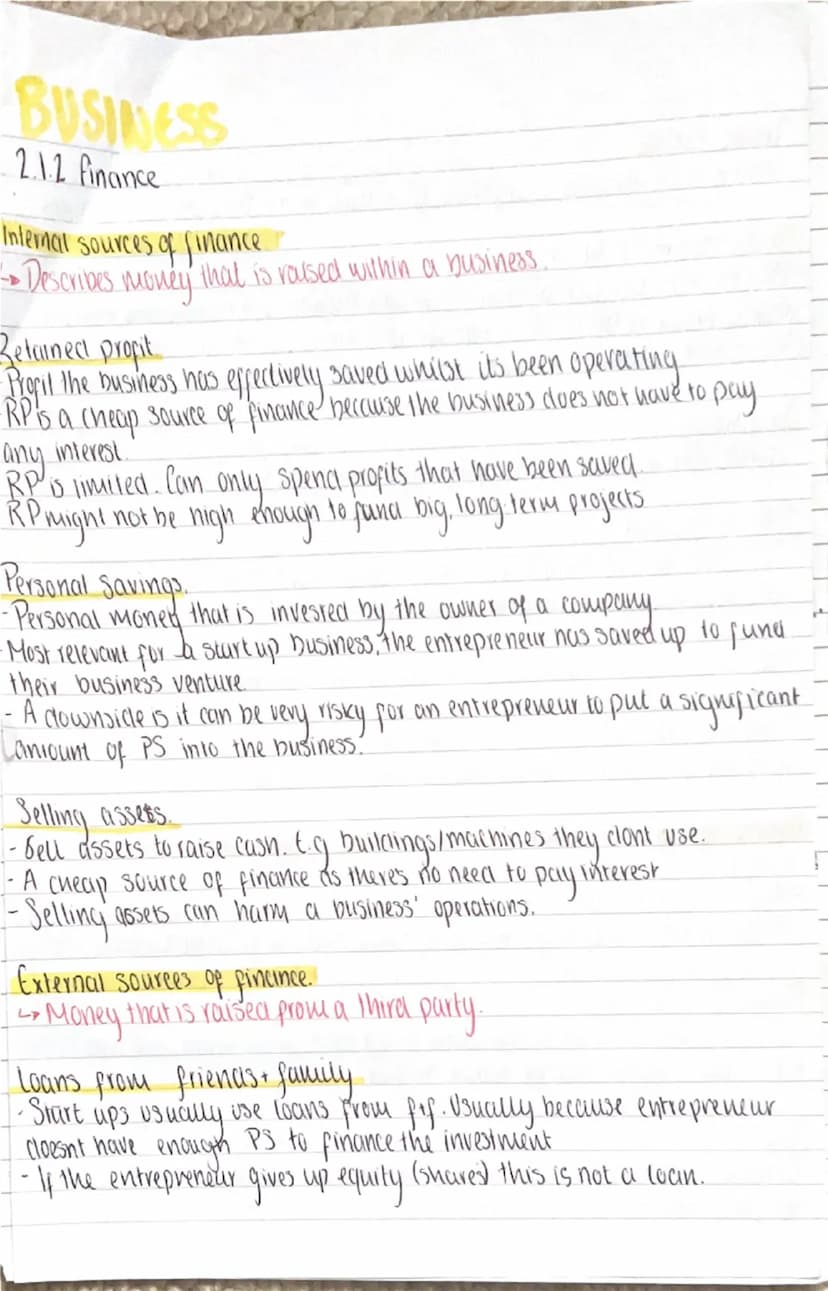 BUSINESS
2.1.2 finance
Internal sources of finance
↳ Describes money that is raised within a business.
Retained profit
- Profit the business has effectively saved whilst its been operating
- RP is a cheap source of finance because the business does not have to pay
any interest.
RP is limited. Can only spend profits that have been saved.
RP might not be high enough to fund big, long-term projects
Personal Savings.
- Personal money that is invested by the owner of a company
- Most relevant for a start up business, the entrepreneur has saved up to fund
their business venture
- A downside is it can be very risky for an entrepreneur to put a significant
amount of PS into the business.
Selling assets.
- Sell assets to raise cash. E.g buildings/machines they dont use.
- A cheap source of finance as there's no need to pay interest
- Selling assets can harm a business' operations.
External sources of finance.
↳ Money that is raised from a third party.
Loans from friends + family
- Start ups usually use loans from f+f. Usually because entrepreneur
doesnt have enough PS to finance the investment
- If the entrepreneur gives up equity (shares) this is not a loan.